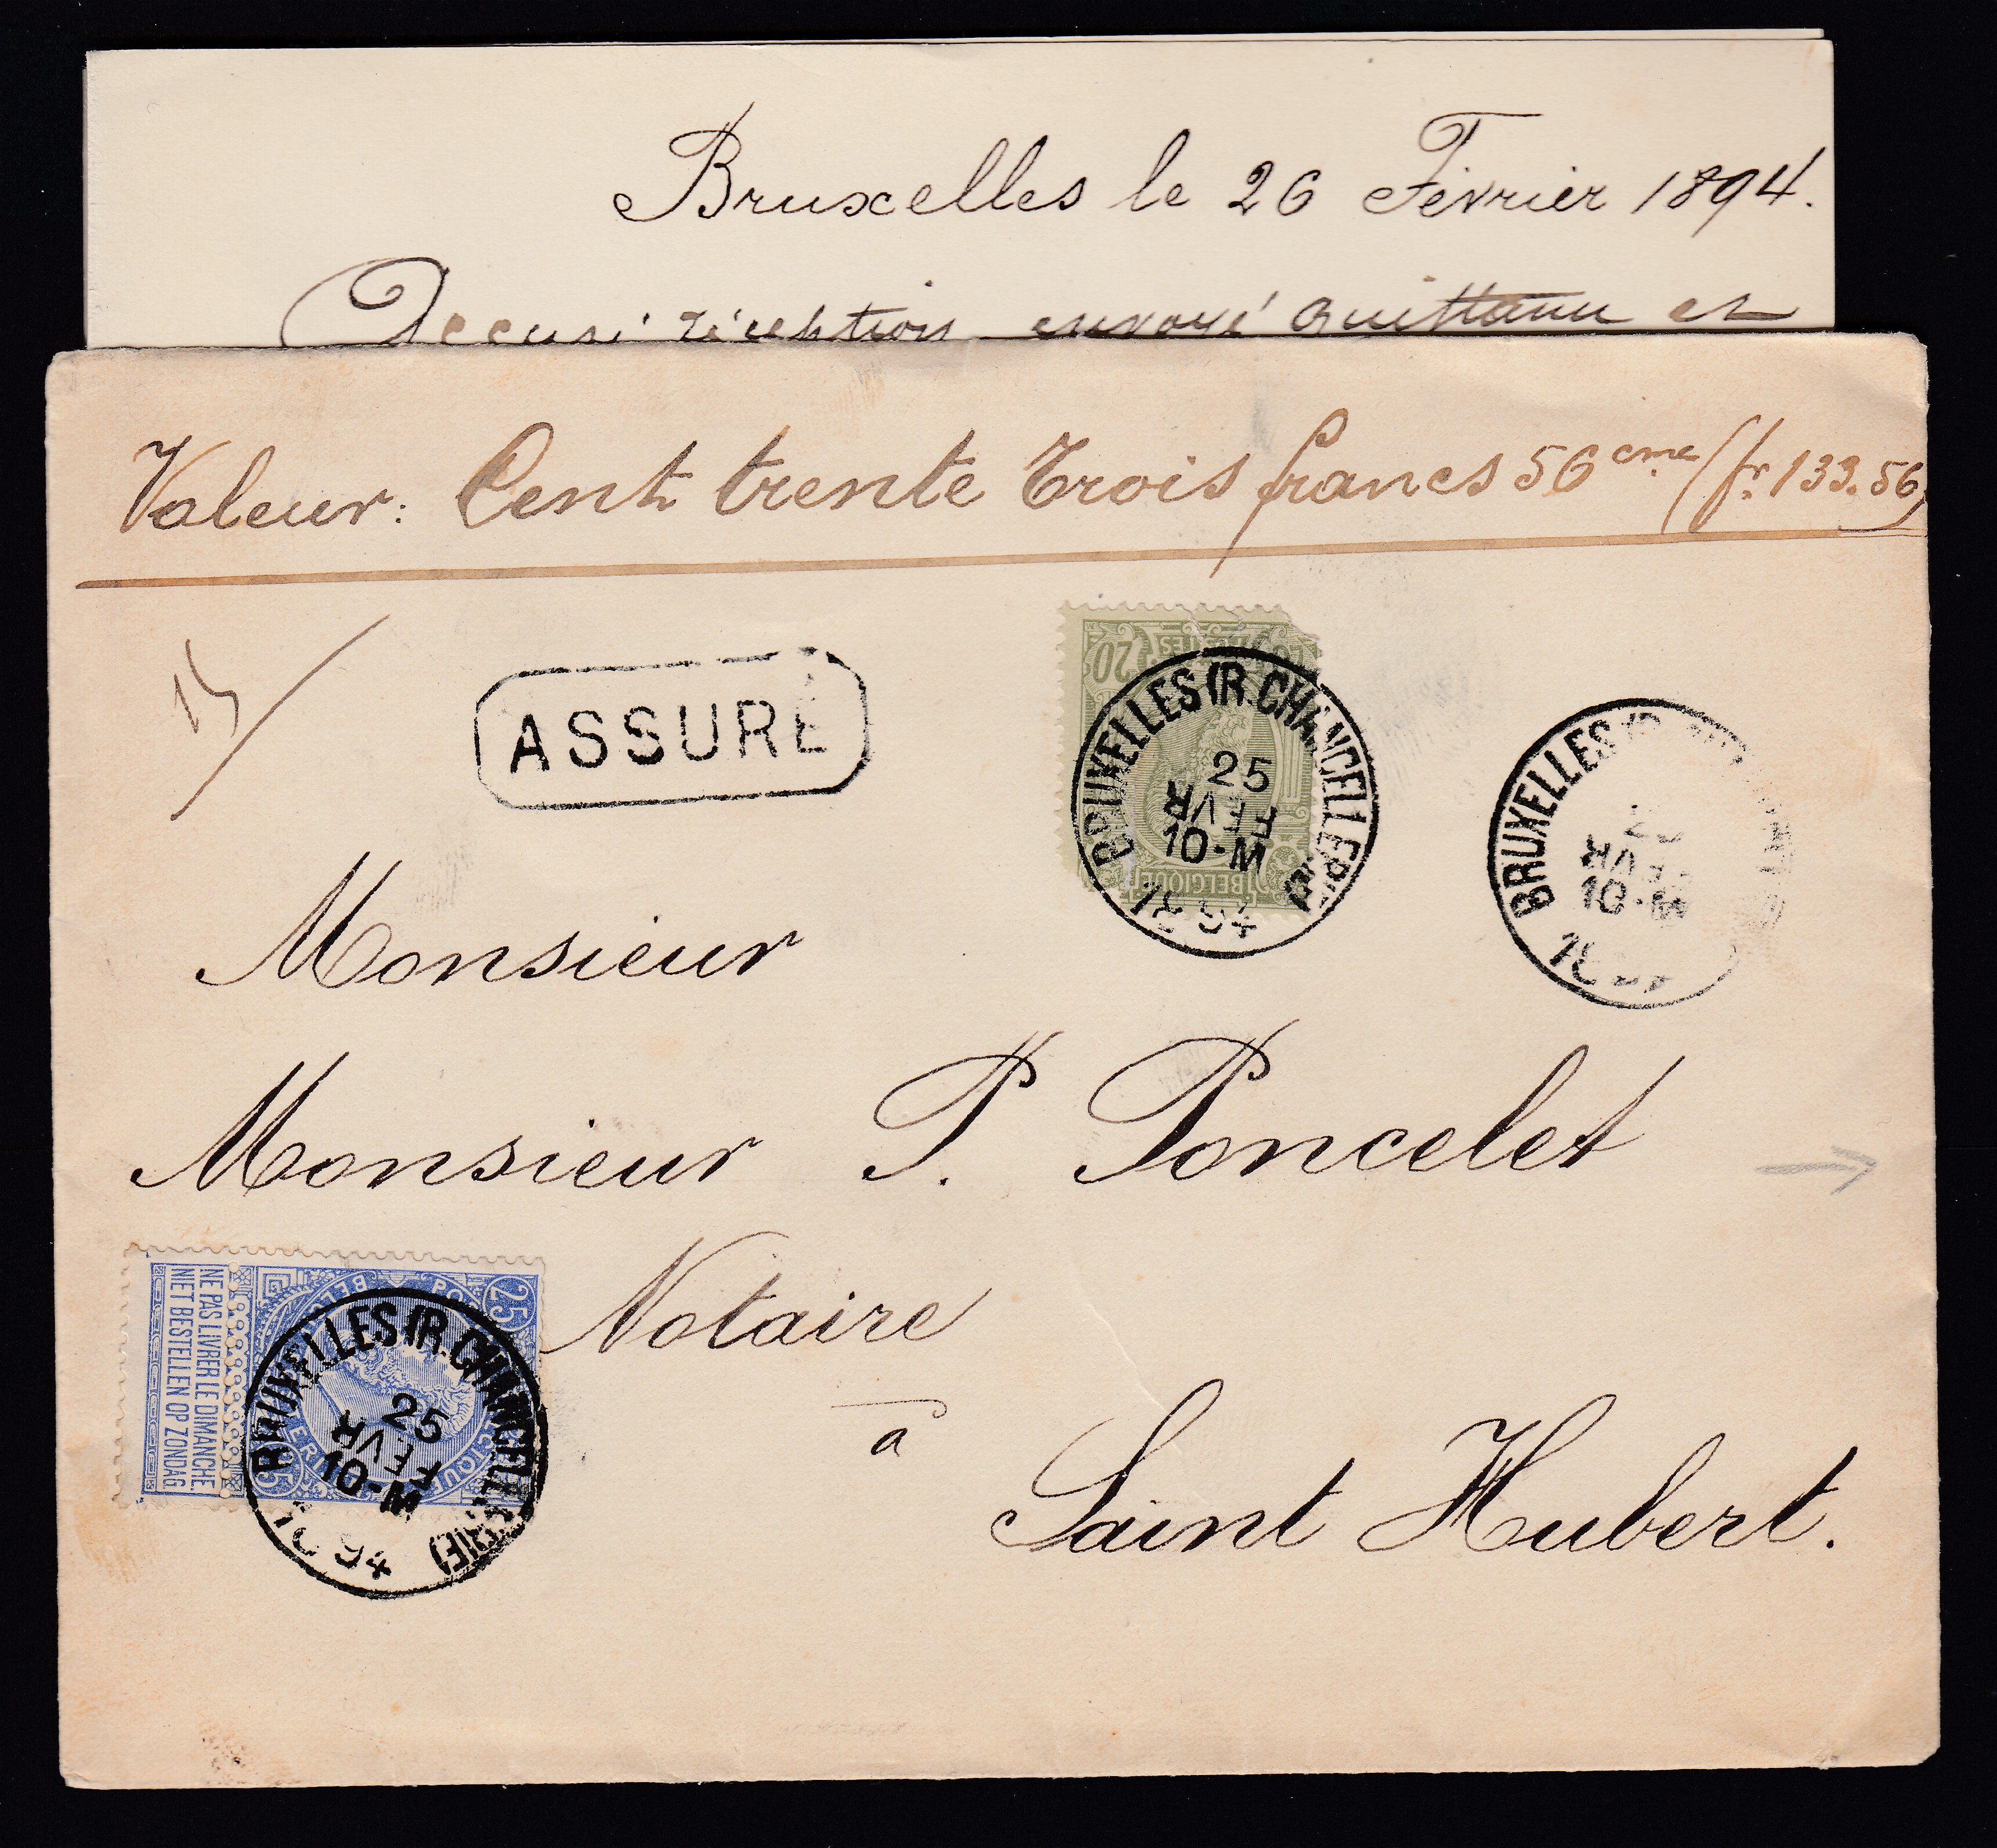 Bruxelles le 26 Février 1894.
Accusé réception envoyé Quittance et
Valeur: Cent trente trois francs 56 cmes (fr. 133.56)
15
ASSURÉ
20
POSTES
BELGIQUE
BRUXELLES (R. CHANCELLERIE)
25
FEVR
10-M
1894
BRUXELLES (R.
FEVR
10-M
Monsieur
Monsieur P. Poncelet
Notaire
à
Saint Hubert.
NE PAS LIVRER LE DIMANCHE
NIET BESTELLEN OP ZONDAG
25
25
BRUXELLES (R. CHANCELLERIE)
25
FEVR
10-M
1894